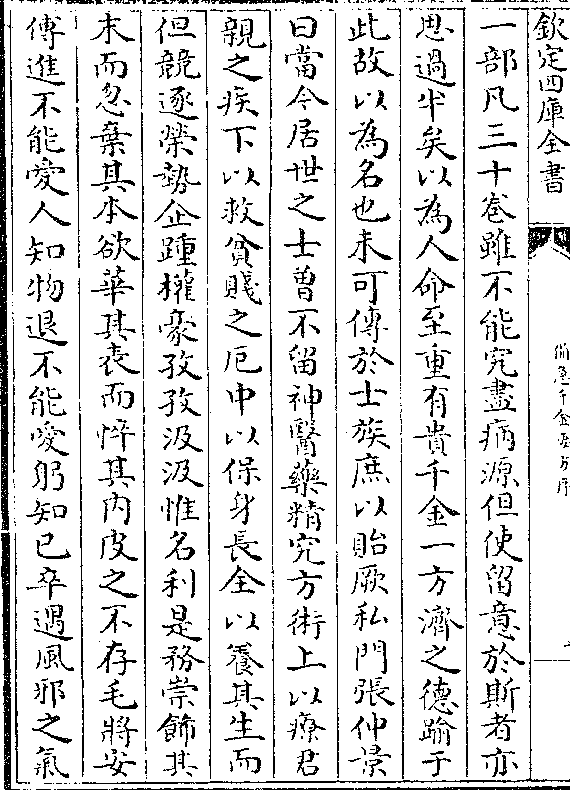 欽定四庫全書
備急千金要方序
一部凡三十卷雖不能究盡病源但使留意於斯者亦
思過半矣以為人命至重有貴千金一方濟之德踰于
此故以為名也未可傳於士族庶以貽厥私門張仲景
曰當今居世之士曽不留神醫藥精究方術上以療君
親之疾下以救貧賤之厄中以保身長全以養其生而
但競逐榮勢企踵權豪孜孜汲汲惟名利是務崇飾其
末而忽棄其本欲華其表而悴其内皮之不存毛將安
傅進不能愛人知物退不能愛躬知已卒遇風邪之氣